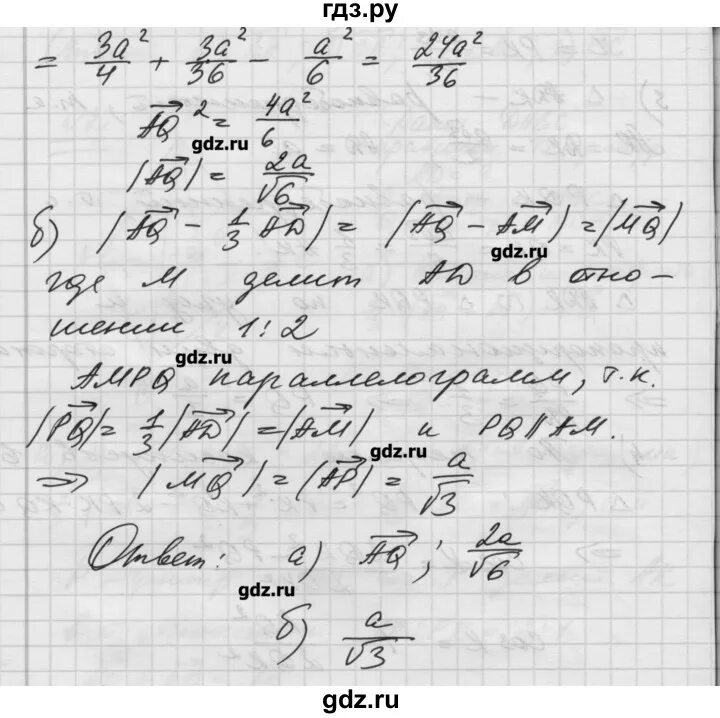 гдз.ру
= 3a²/4 + 3a²/36 - a²/6 = 24a²/36
AQ² = 4a²/6
gdz.ru
|AQ| = 2a/√6
б) |AQ - 1/3 AD| = |AQ - AM| = |MQ|
gdz.ru
где M делит AD в отно-
шении 1:2
gdz.ru
AMPQ параллелограмм, т.к.
|PQ| = 1/3 |AD| = |AM| и PQ || AM.
gdz.ru
⇒ |MQ| = |AP| = a/√3
Ответ: а) AQ; 2a/√6
gdz.ru
б) a/√3
gdz.ru